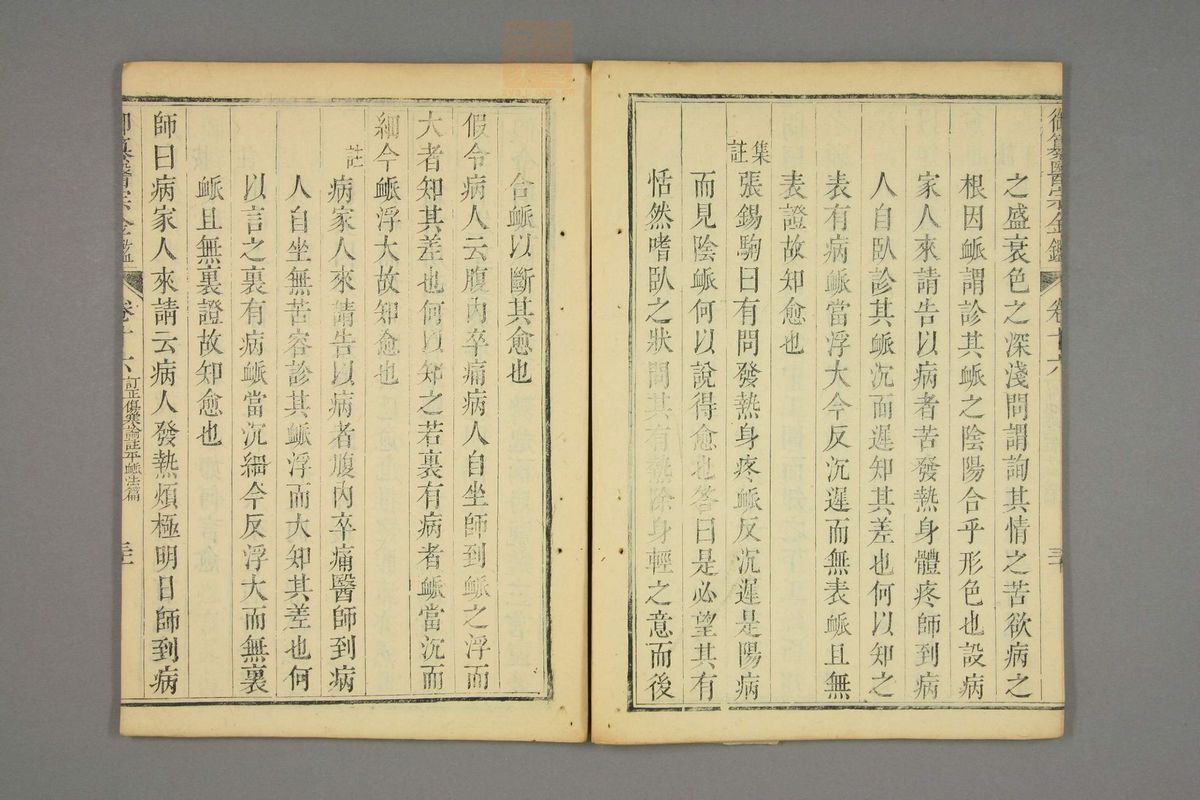 御纂醫宗金鑑 卷十六 三十
之盛衰色之深淺問謂詢其情之苦欲病之
根因脈謂診其脈之陰陽合乎形色也設病
家人來請告以病者苦發熱身體疼師到病
人自臥診其脈沉而遲知其差也何以知之
表有病脈當浮大今反沉遲而無表脈且無
表證故知愈也
集註
張錫駒曰有問發熱身疼脈反沉遲是陽病
而見陰脈何以說得愈也答曰是必望其有
恬然嗜臥之狀問其有熱除身輕之意而後
合脈以斷其愈也
假令病人云腹內卒痛病人自坐師到脈之浮而
大者知其差也何以知之若裏有病者脈當沉而
細今脈浮大故知愈也
註
病家人來請告以病者腹內卒痛醫師到病
人自坐無苦容診其脈浮而大知其差也何
以言之裏有病脈當沉細今反浮大而無裏
脈且無裏證故知愈也
師曰病家人來請云病人發熱煩極明日師到病
御纂醫宗金鑑 卷十六 訂正傷寒論註平脈法篇